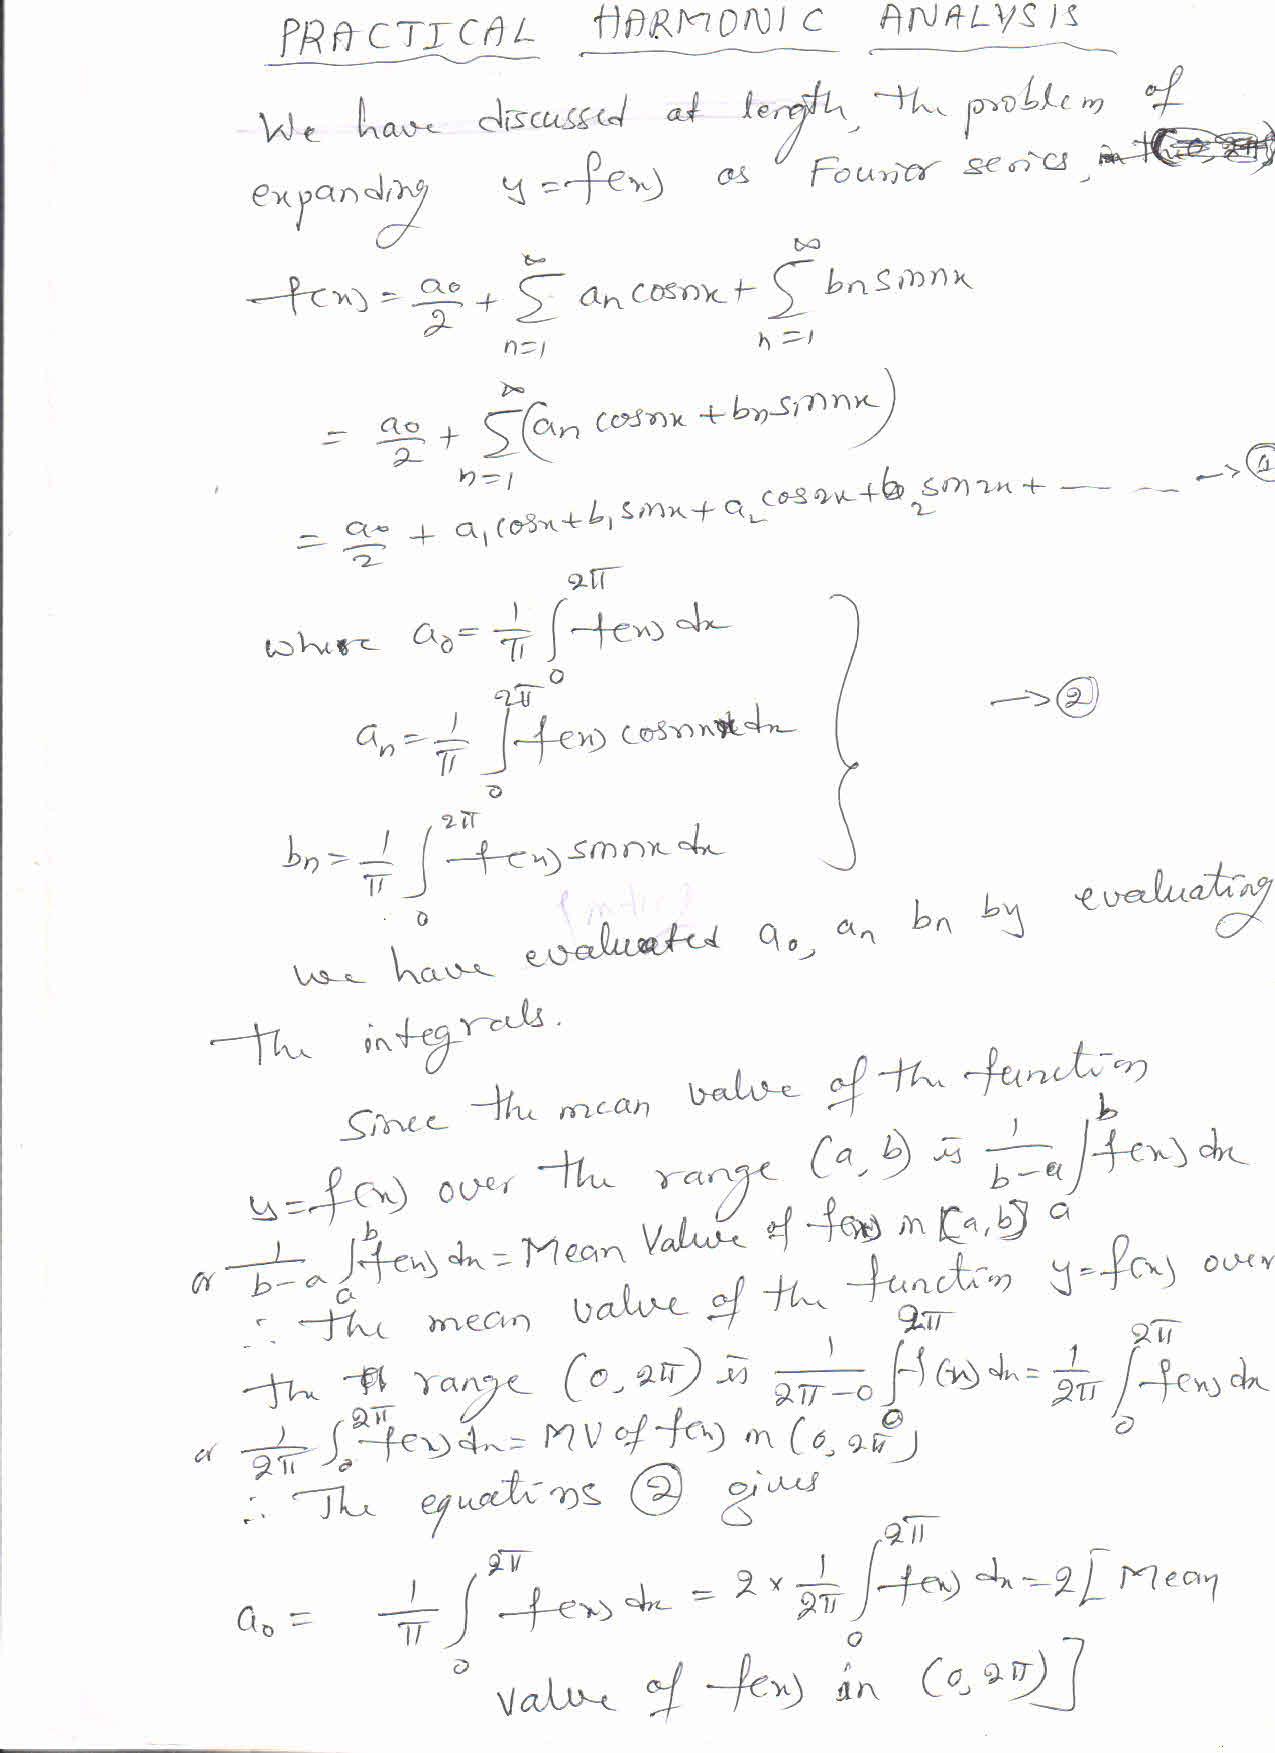 PRACTICAL HARMONIC ANALYSIS
We have discussed at length, the problem of
expanding y=f(x) as Fourier series,
f(x) = a0/2 + ∑_{n=1}^{∞} an cosnx + ∑_{n=1}^{∞} bn sinnx
= a0/2 + ∑_{n=1}^{∞} (an cosnx + bn sinnx)
= a0/2 + a1 cosx + b1 sinx + a2 cos2x + b2 sin2x + — — — → ①
where a0 = 1/π ∫_0^{2π} f(x) dx
an = 1/π ∫_0^{2π} f(x) cosnx dx → ②
bn = 1/π ∫_0^{2π} f(x) sinnx dx
we have evaluated a0, an bn by evaluating
the integrals.
Since the mean value of the function
y=f(x) over the range (a, b) is 1/(b-a) ∫_a^b f(x) dx
or 1/(b-a) ∫_a^b f(x) dx = Mean Value of f(x) in [a, b]
∴ the mean value of the function y=f(x) over
the range (0, 2π) is 1/(2π-0) ∫_0^{2π} f(x) dx = 1/2π ∫_0^{2π} f(x) dx
or 1/2π ∫_0^{2π} f(x) dx = MV of f(x) in (0, 2π)
∴ The equations ② gives
a0 = 1/π ∫_0^{2π} f(x) dx = 2 × 1/2π ∫_0^{2π} f(x) dx = 2[Mean
value of f(x) in (0, 2π)]